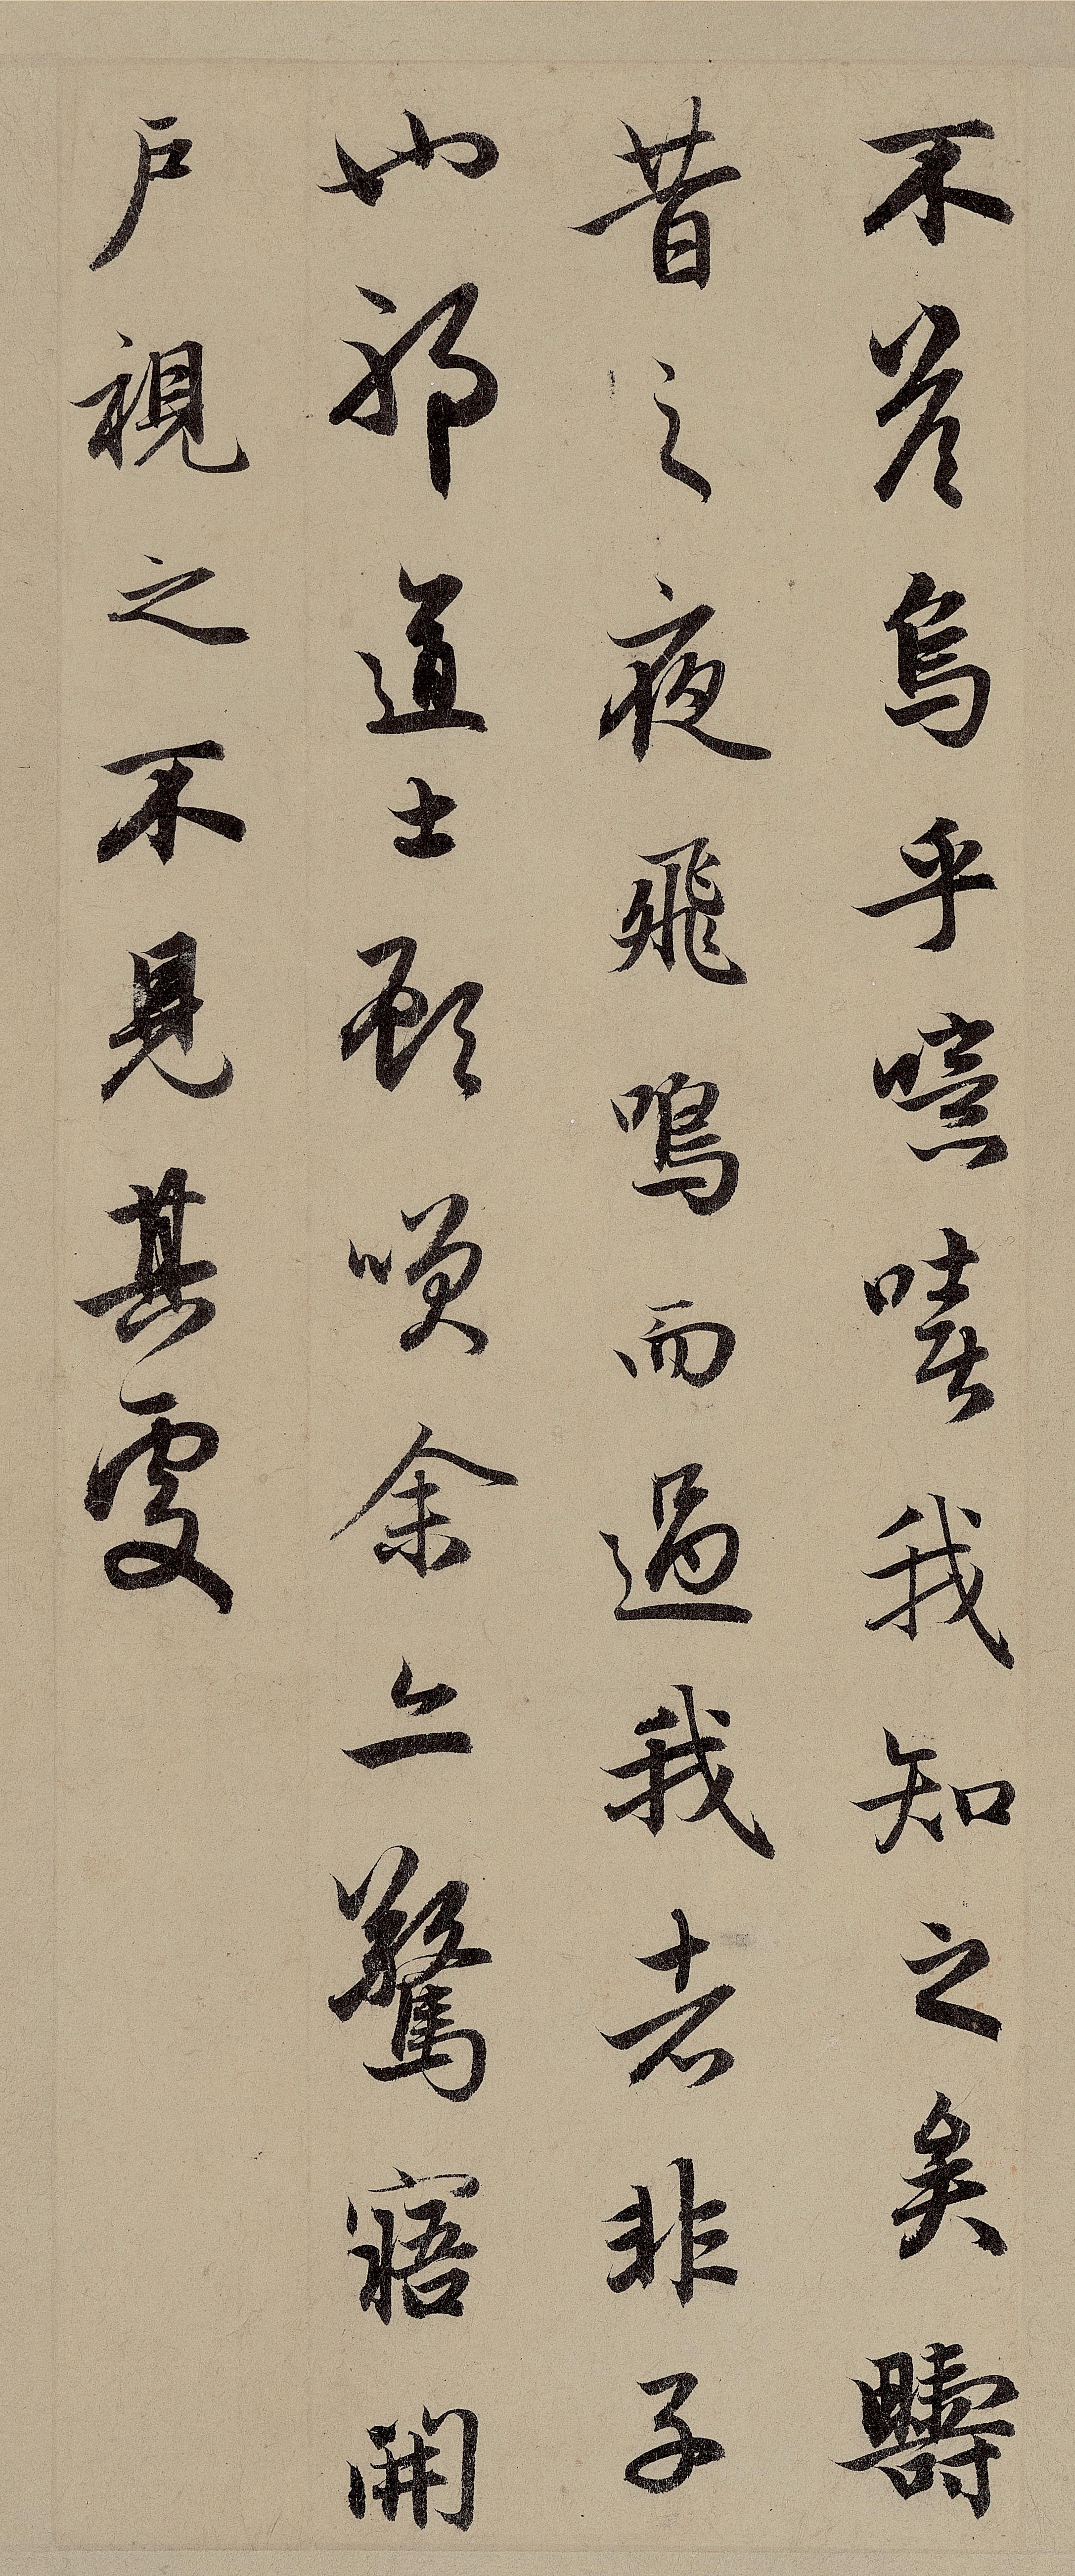 不答烏乎噫嘻我知之矣疇
昔之夜飛鳴而過我者非子
也邪道士顧笑余亦驚寤開
戶視之不見其處